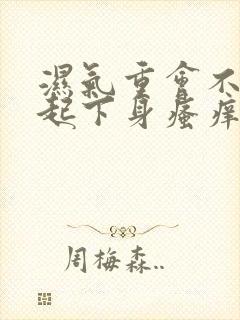 濕氣重會不
起下身瘙痒
周梅森..